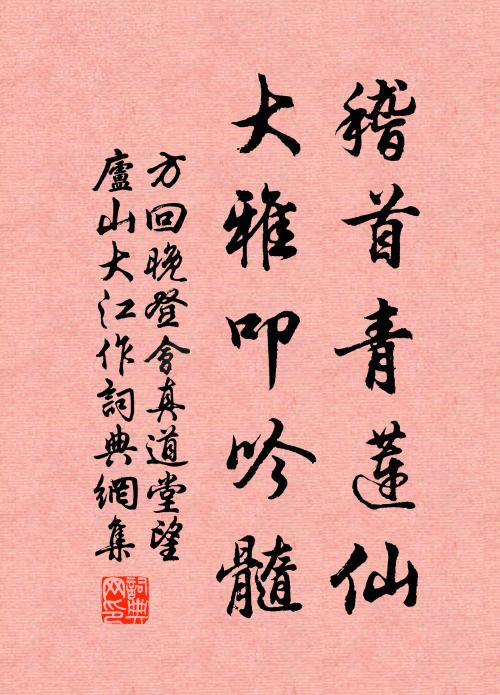 稽首青蓮仙
大雅叩吟髓
方回晚登會真道堂望
廬山大江作詞典網集
詞典網印